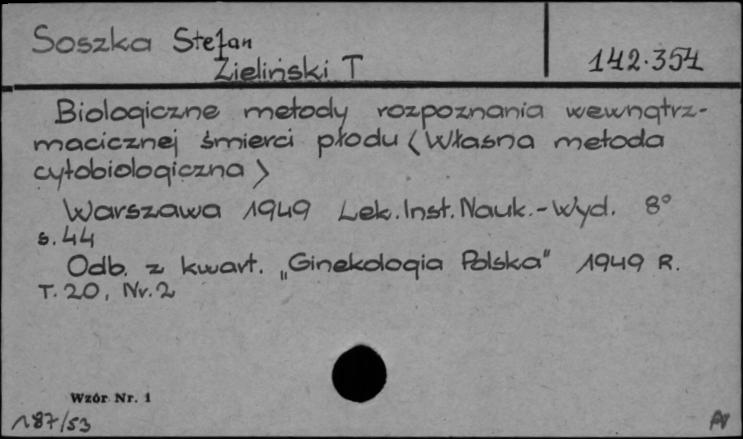 Soszka Stefan
Zieliński T
142.354
Biologiczne metody rozpoznania wewnątrz-
macicznej śmierci płodu (Własna metoda
cytobiologiczna)
Warszawa 1949 Lek. Inst. Nauk.-Wyd. 8°
s. 44
Odb. z kwart. „Ginekologia Polska" 1949 R.
T. 20, Nr. 2
Wzór Nr. 1
187/53